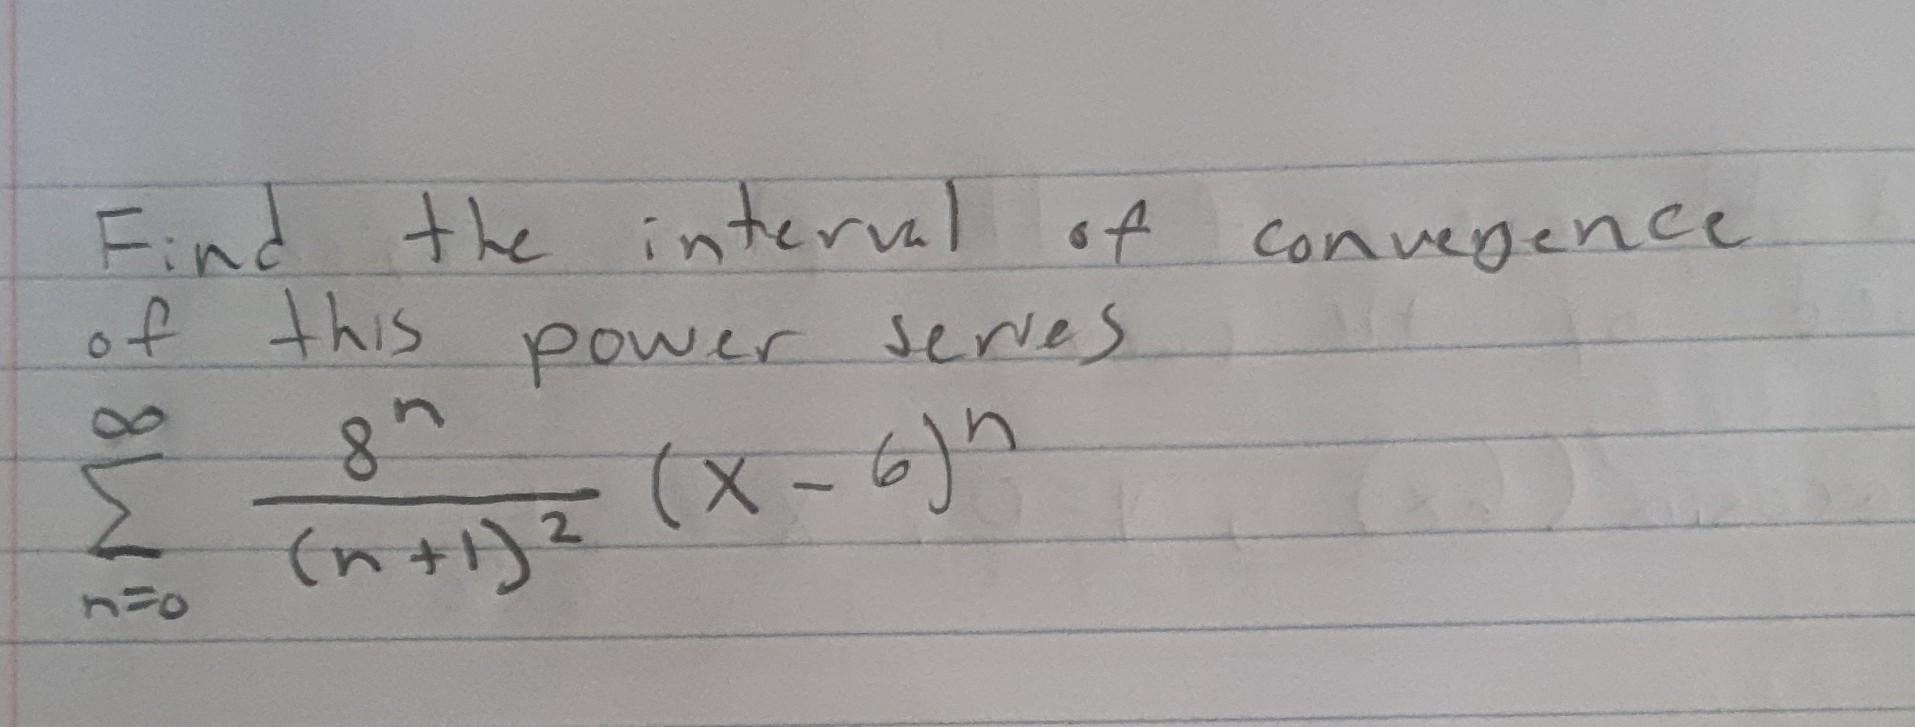 Find the interval of convegence
of this power series
∞
∑ 8^n / (n+1)^2 (x - 6)^n
n=0